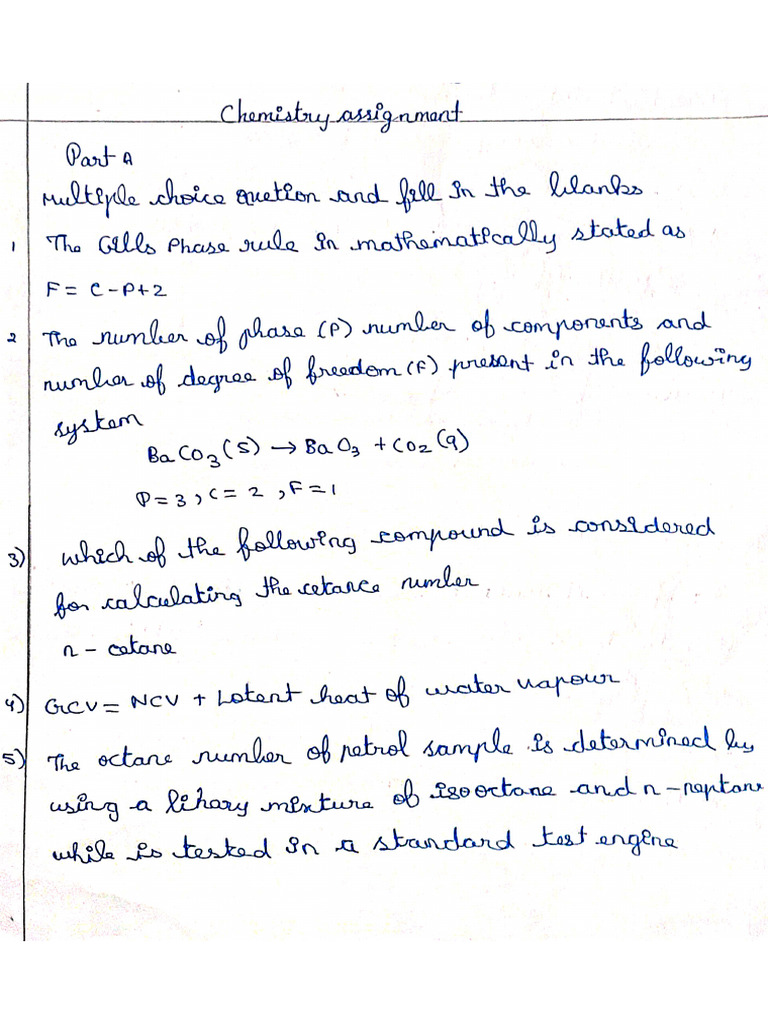 Chemistry assignment
Part A
Multiple choice quetion and fill in the blanks
1 The Gibbs Phase rule in mathematically stated as
F = C - P + 2
2 The number of phase (P) number of components and
number of degree of freedom (F) present in the following
system
BaCO3 (s) → BaO3 + CO2 (g)
P = 3, C = 2, F = 1
3) which of the following compound is considered
for calculating the cetance number
n - cetane
4) GCV = NCV + Latent heat of water vapour
5) The octane number of petrol sample is determined by
using a binary mixture of isooctane and n-neptane
while is tested in a standard test engine